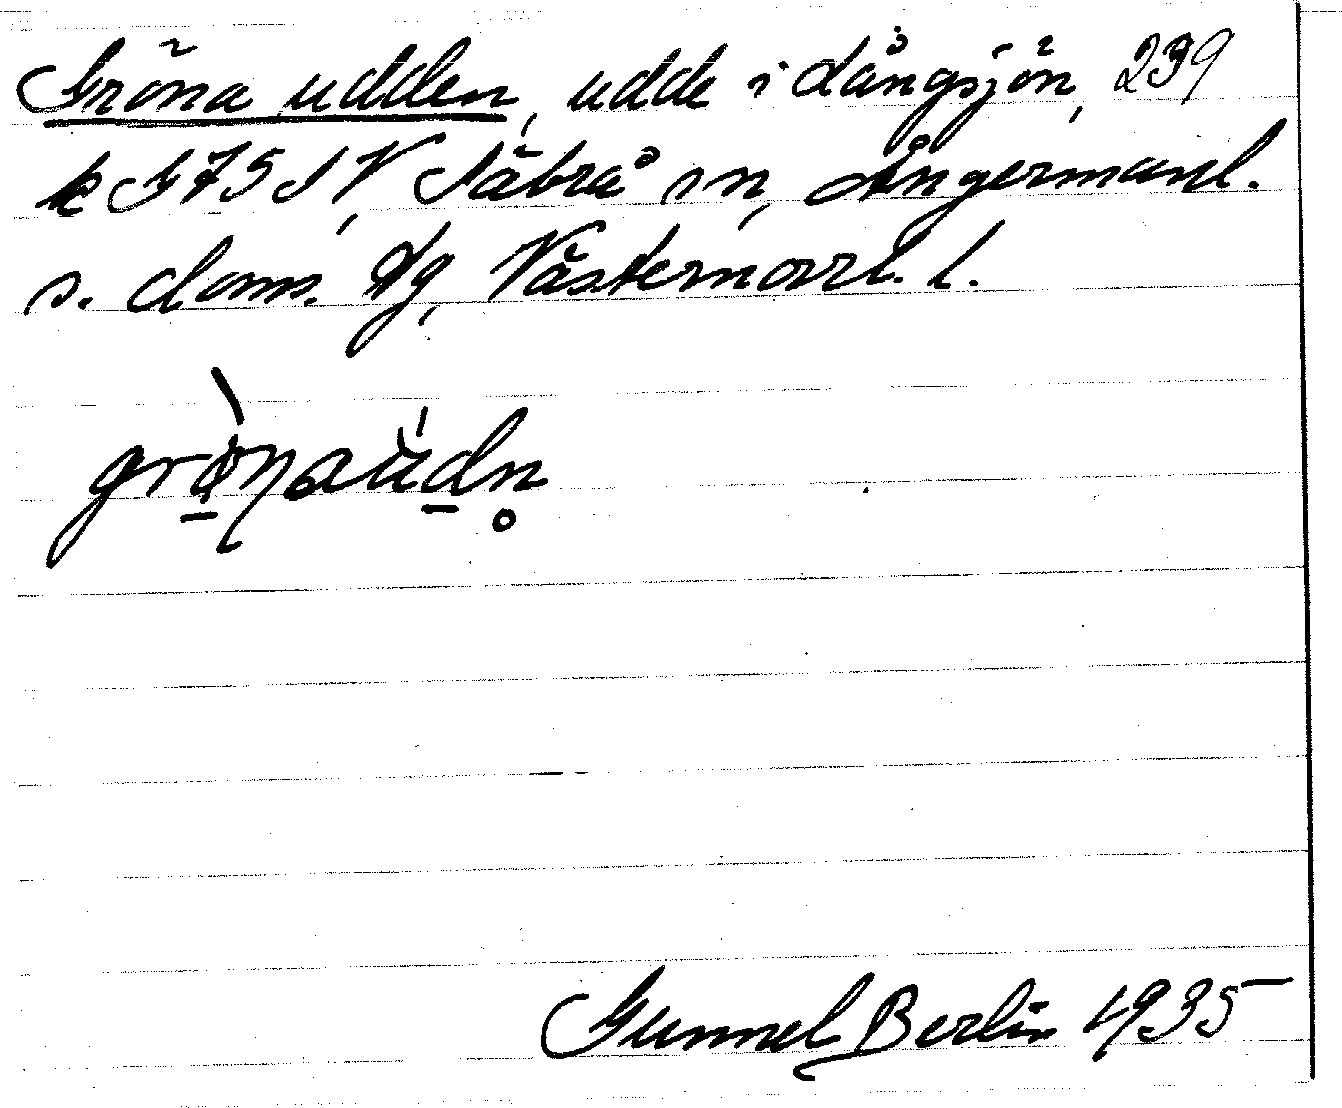 Gröna udden, udde i Långsjön, 239
k S 75 SV, Säbrå sn, Ångermanl.
s. doms. Ög, Västernorrl. l.
grö̀naüdn̥
Gunnel Berlin 1935